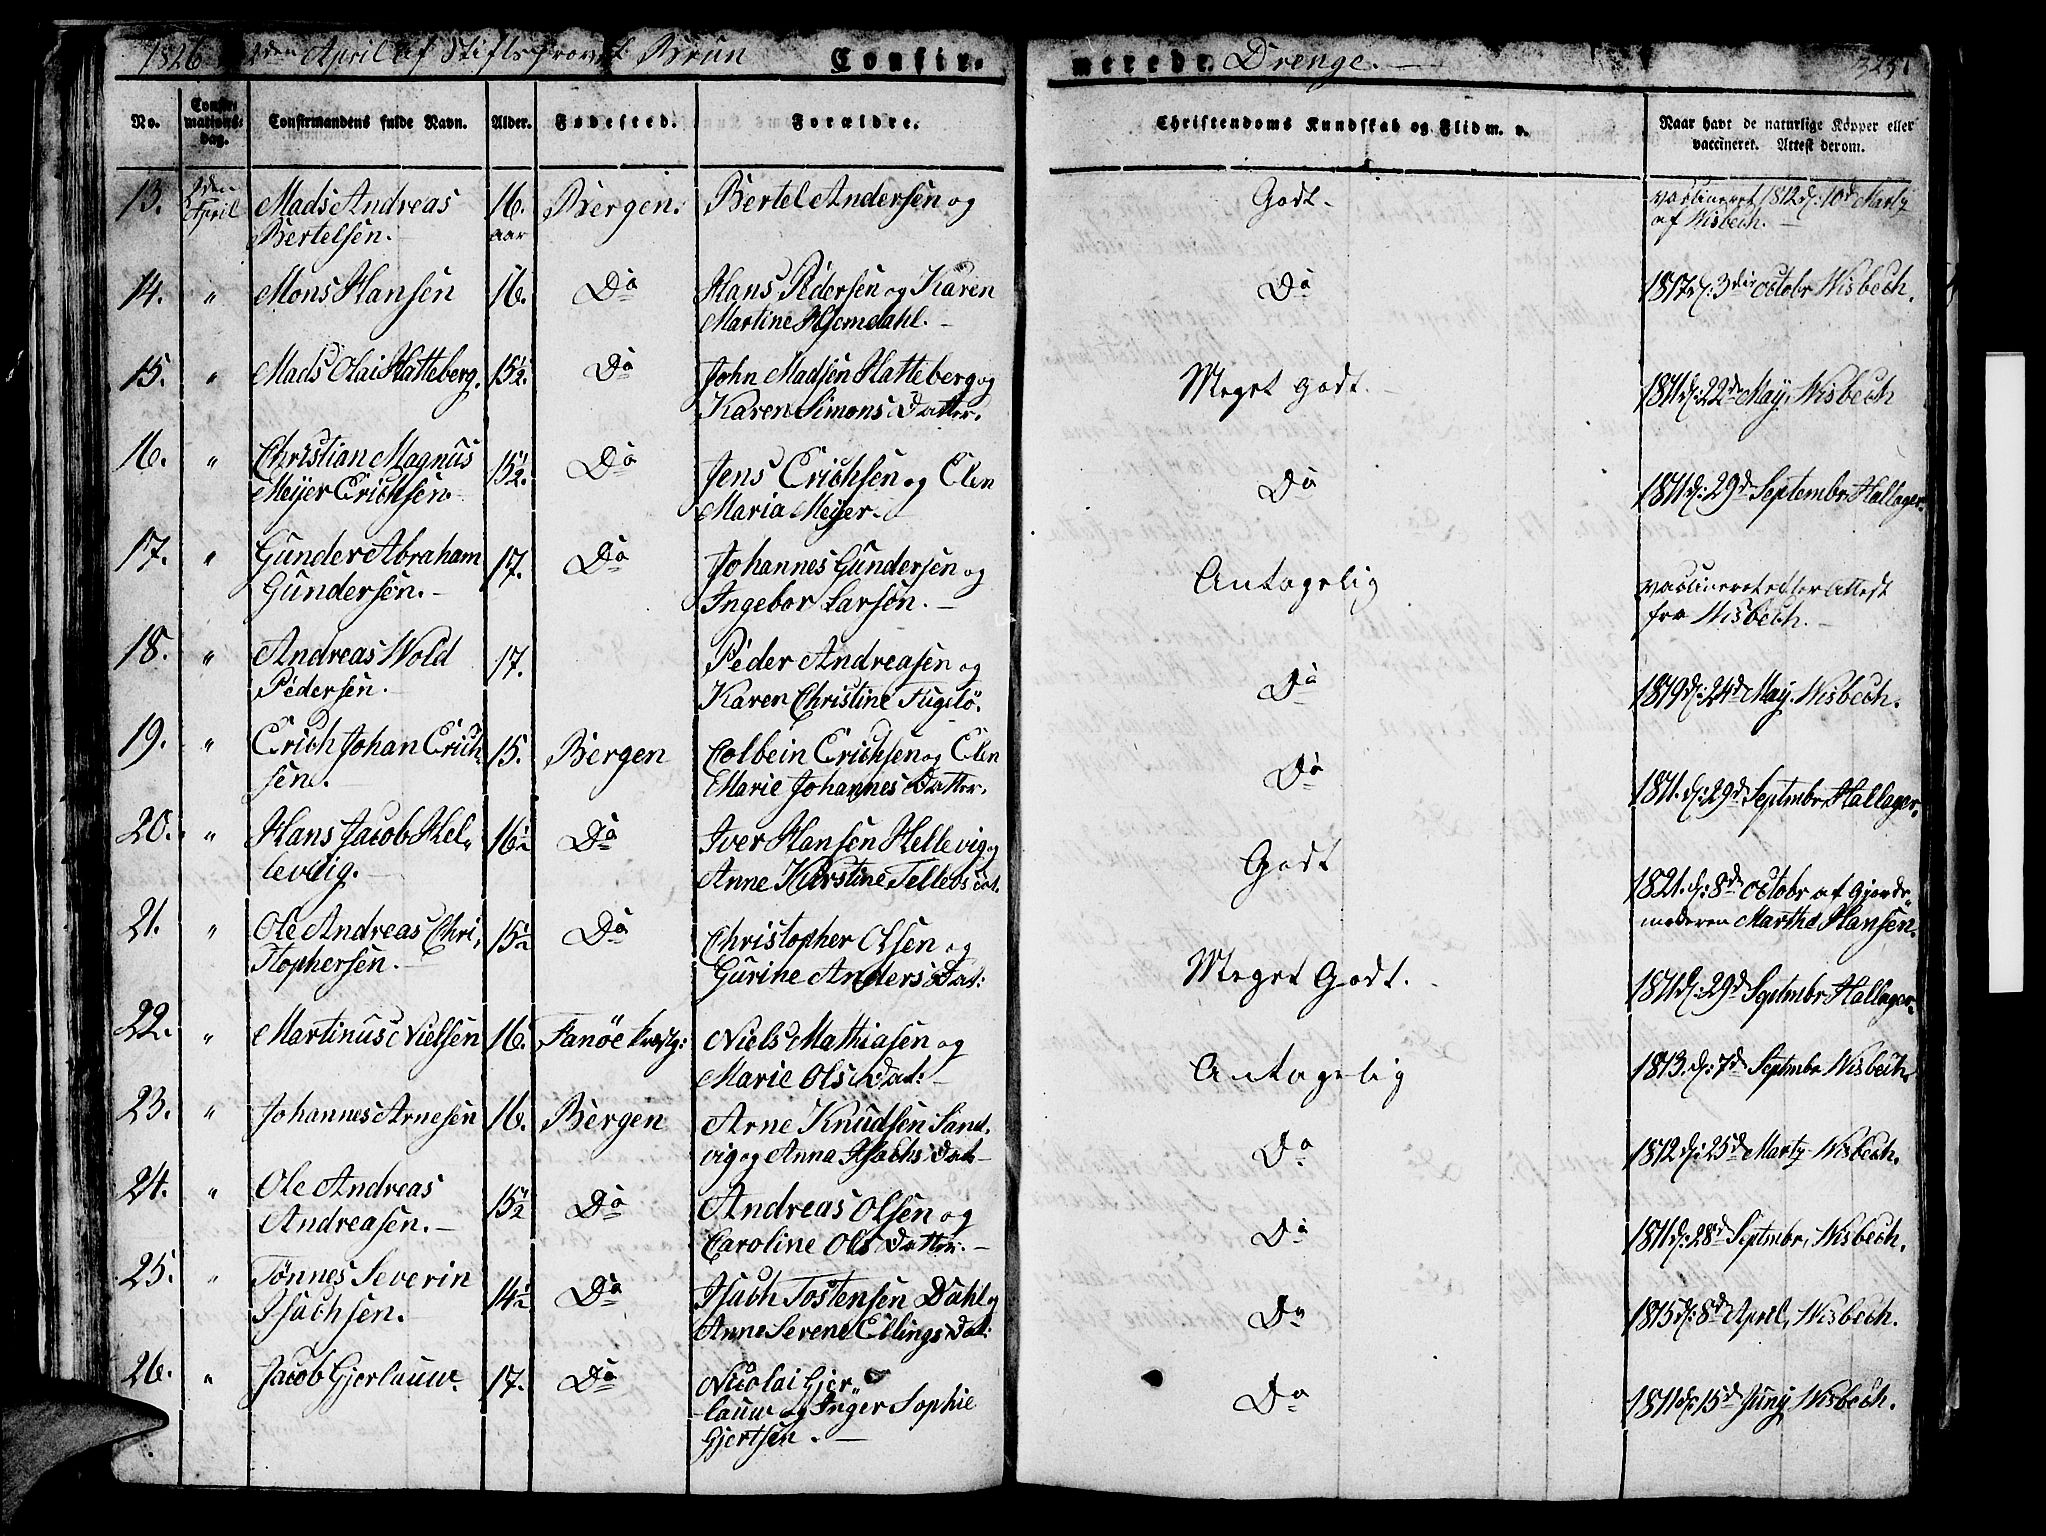 1826 2den April af Stiftsprovst Brun Confir- merede Drenge. 325
No.
Confir-
mations-
dag.
Confirmandens fulde Navn.
Alder.
Fødested.
Forældre.
Christendoms Kundskab og Flid m. v.
Naar havt de naturlige Kopper eller
vaccineret. Attest derom.
13. 2den April Mads Andreas 16. Bergen. Bertel Andersen og Godt. vaccineret 1812 d: 10d Marty
Bertelsen. aar af Wisbech.
14. " Mons Hansen 16. Do Hans Pedersen og Karen Do 1817 d: 3die octobr Wisbech.
Martine Hjomdahl.
15. " Mads Olai Hatteberg. 15½. Do John Madsen Hatteberg og Meget godt. 1811 d: 22d May. Wisbech
Karen Simons Datter.
16. " Christian Magnus 15½. Do Jens Erichsen og Elen Do 1811 d: 29d Septembr Hallager.
Meyer Erichsen. Maria Meyer.
17. " Gunder Abraham 17. Do Johannes Gundersen og Antagelig vaccineret efter attest
Gundersen. Ingebor Larsen. fra Wisbech.
18. " Andreas Wold 17. Peder Andreasen og Do 1819 d: 24d May. Wisbech.
Pedersen. Karen Christine Fugelö.
19. " Erich Johan Erich- 15. Bergen Colbein Erichsen og Elen Do 1811. d: 29d Septmbr Hallager.
sen. Marie Johannes Datter.
20. " Hans Jacob Hel- 16½ Do Iver Hansen Hellevig og Godt 1821. d: 8d octobr af Gjorde-
levig. Anne Kirstine Tellefs Dat. moderen Marthe Hansen.
21. " Ole Andreas Chri- 15½ Do Christopher Olsen og Meget Godt. 1811 d: 29d Septmbr Hallager.
stophersen. Gurine Anders Dat:
22. " Martinus Nielsen 16. Fanöe Præstg: Niels Mathiasen og Antagelig 1813. d: 7d Septmbr Wisbech.
Marie Ols Dat:
23. " Johannes Arnesen 16. Bergen Arne Knudsen Sand- Do 1812 d: 25d Marty Wisbech.
vig og Anna Isachs Dat
24. " Ole Andreas 15½ Do Andreas Olsen og Do 1811 d: 28d Septmbr, Wisbech.
Andreasen. Caroline Ols Datter.
25. " Tönnes Severin 14½ Do Isach Tostensen Dahl og Do 1815 d: 8d April, Wisbech.
Isachsen. Anne Serene Ellings Dat:
26. " Jacob Gjerlauw. 17. Do Nicolai Gjer- Do 1811 d: 15d Juny Wisbech.
lauw og Inger Sophie
Gjertsen.